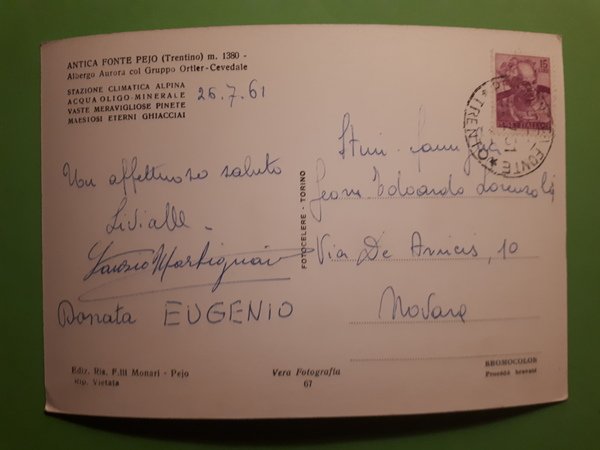 ANTICA FONTE PEJO (Trentino) m. 1380 -
Albergo Aurora col Gruppo Ortler-Cevedale
STAZIONE CLIMATICA ALPINA
ACQUA OLIGO-MINERALE
VASTE MERAVIGLIOSE PINETE
MAESTOSI ETERNI GHIACCIAI
26.7.61
Un affettuoso saluto
Donata EUGENIO
Ediz. Ris. F.lli Monari - Pejo
Rip. Vietata
Vera Fotografia
67
FOTOCELERE - TORINO
15
ITALIANE
FONTE * TRENTO *
Edoardo
Via De Amicis, 10
Novara
KROMOCOLOR